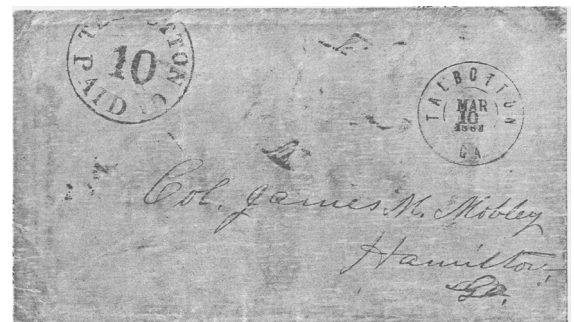 TALBOTTON
10
PAID GA
TALBOTTON
MAR
10
GA
Col. James M. Mobley
Hamilton
Ga.